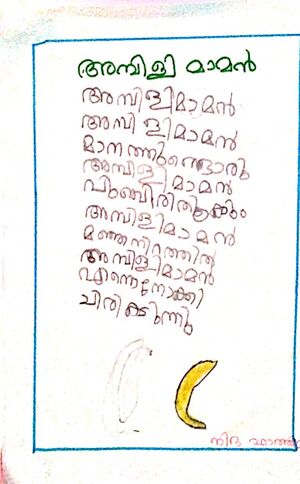 അമ്പിളി മാമൻ
അമ്പിളിമാമൻ
അമ്പിളിമാമൻ
മാനത്തുണ്ടൊരു
അമ്പിളിമാമൻ
പുഞ്ചിരിതൂകും
അമ്പിളിമാമൻ
മഞ്ഞനിറത്തിൽ
അമ്പിളിമാമൻ
എന്നെനോക്കി
ചിരിക്കുന്നു
നിദ